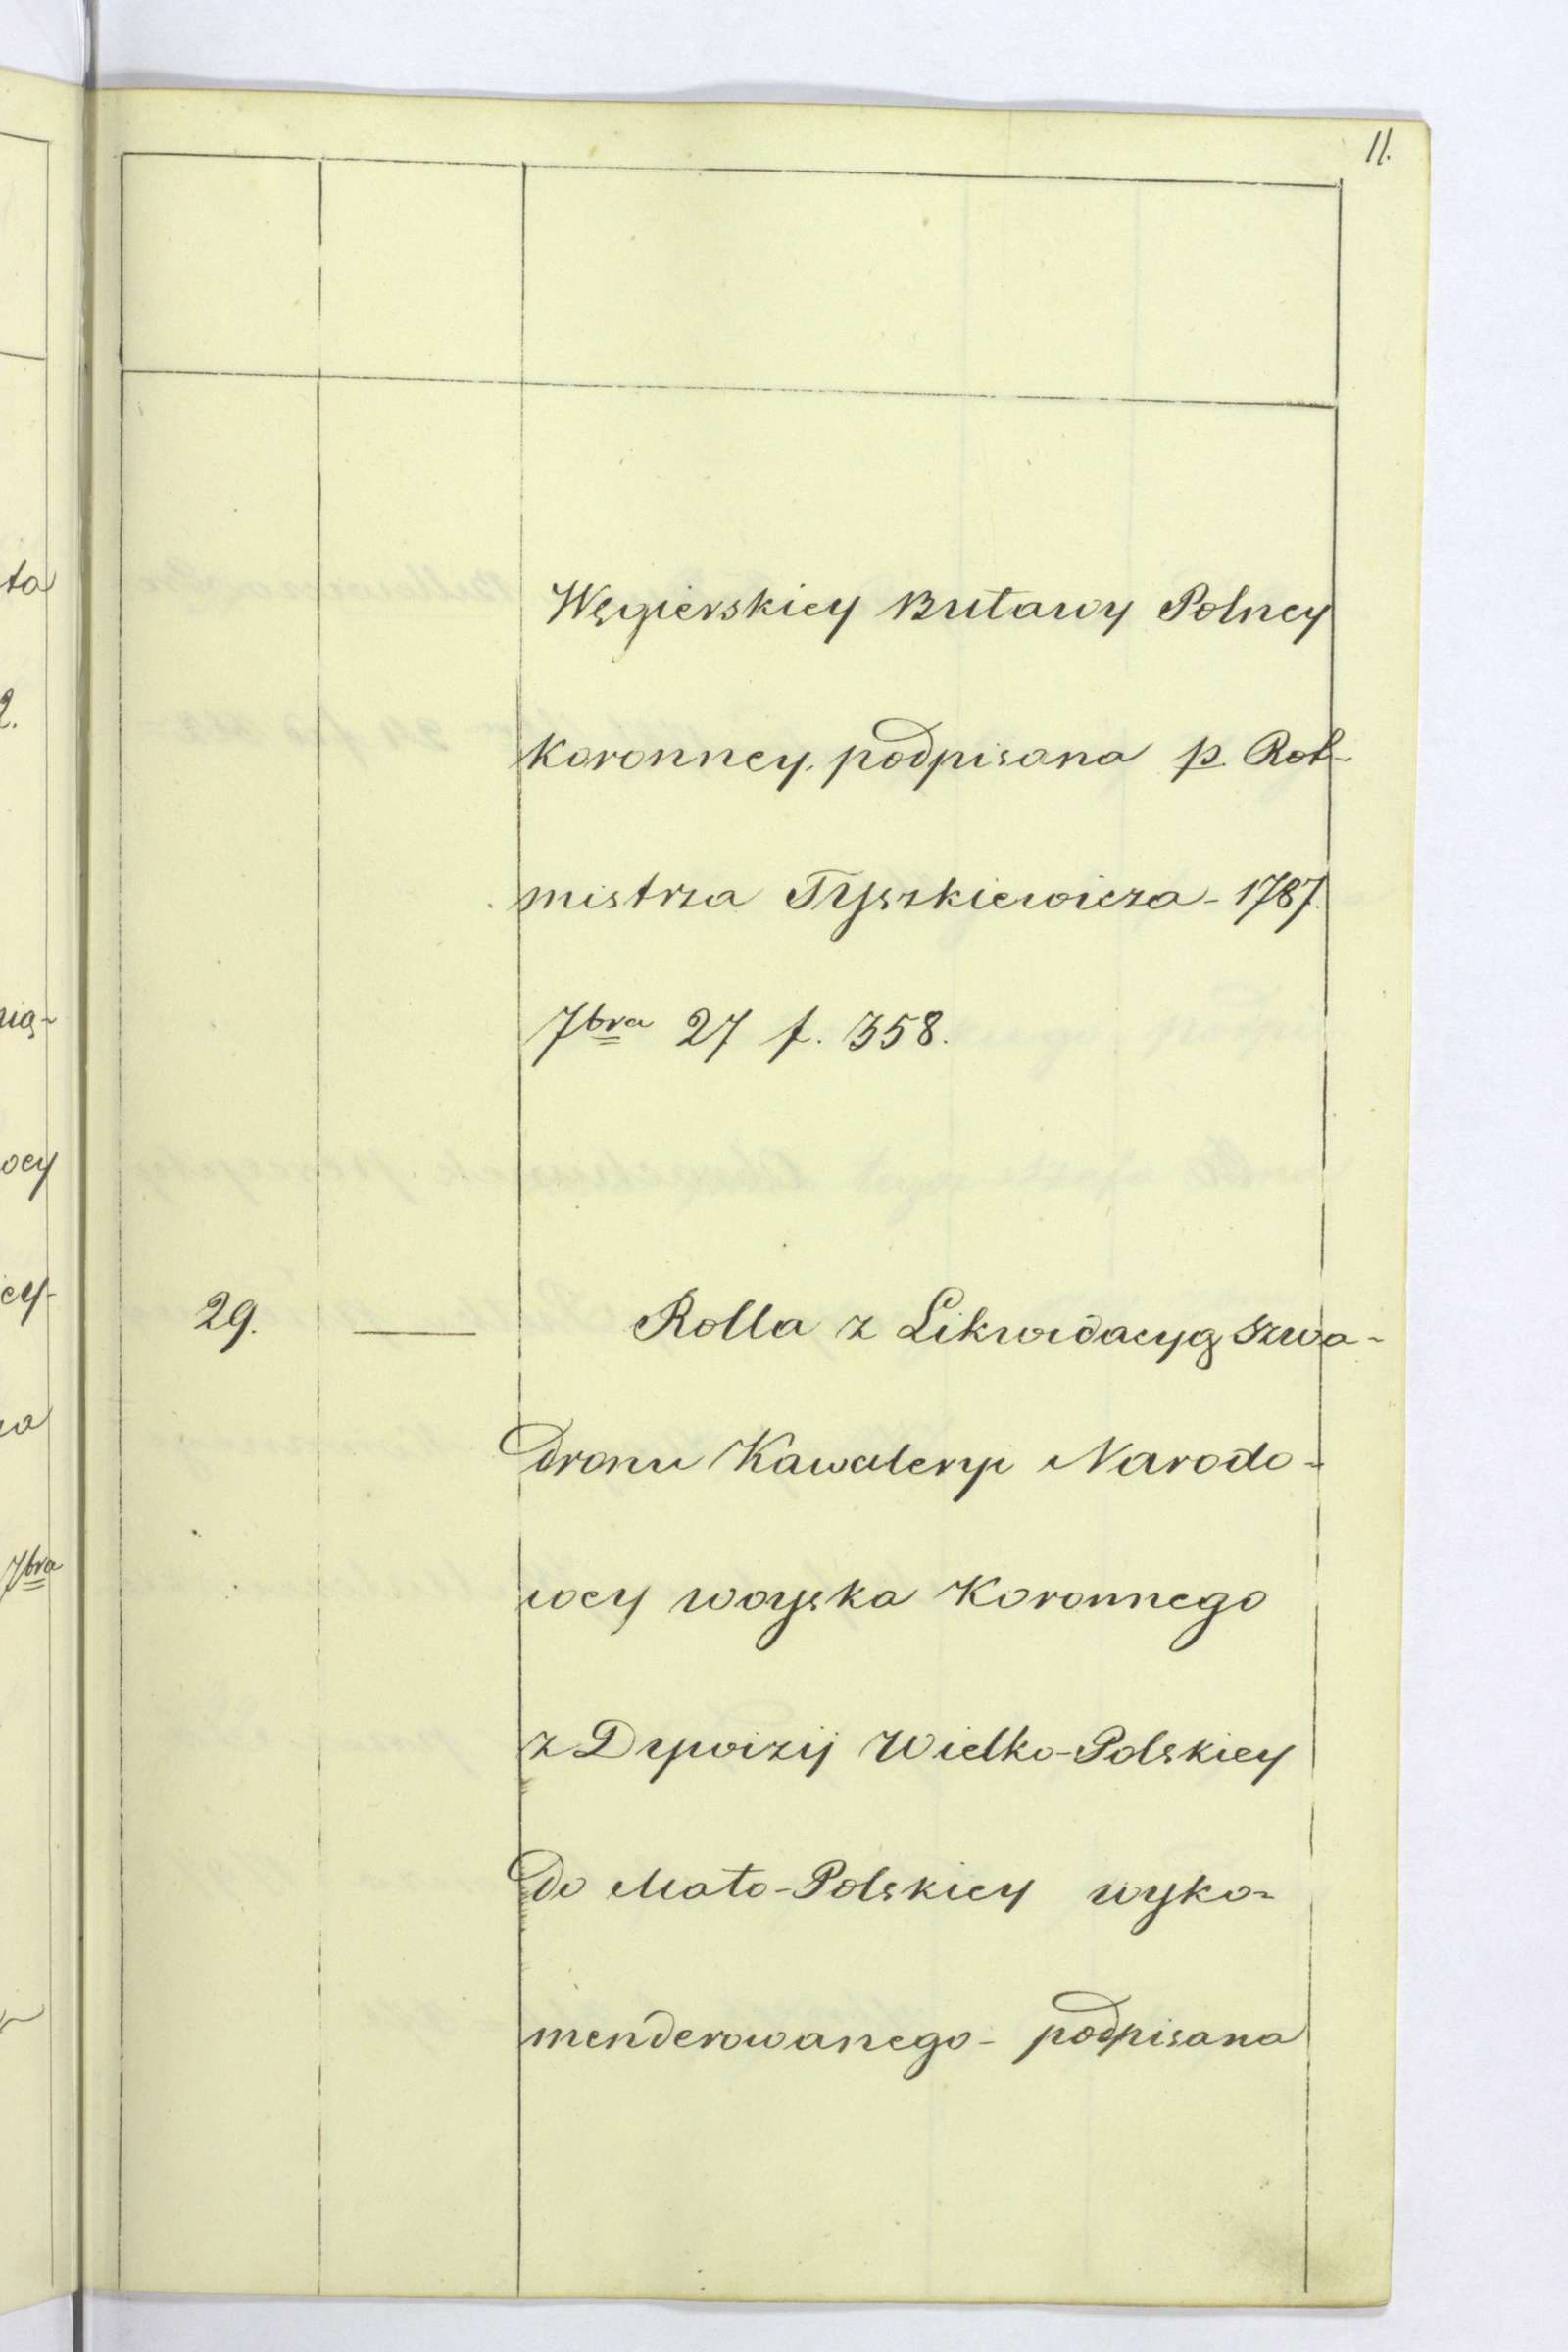 11.
Węgierskiey Buławy Polney
Koronney, podpisana p. Rot-
mistrza Tyszkiewicza - 1787.
7bra 27 f. 358.
29. — Rolla z Likwidacyą szwa-
dronu Kawaleryi Narodo-
wey woyska Koronnego
z Dywizij Wielko-Polskiey
do Mało-Polskiey wyko-
menderowanego - podpisana
ta
2.
nią-
ocy
cy-
7bra